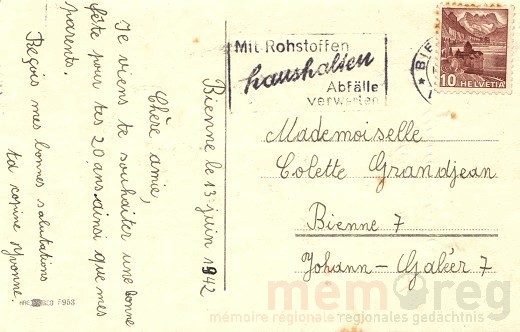 Bienne le 13 juin 1942
Chère amie,
Je viens te souhaiter une bonne
fête pour tes 20 ans, ainsi que mes
parents.
Reçois mes bonnes salutations
ta copine Yvonne.
F953
Mit Rohstoffen
haushalten
Abfälle
verwerten
BIE
10 HELVETIA
Mademoiselle
Colette Grandjean
Bienne 7
Johann-Galéer 7
memoreg
mémoire régionale regionales gedächtnis